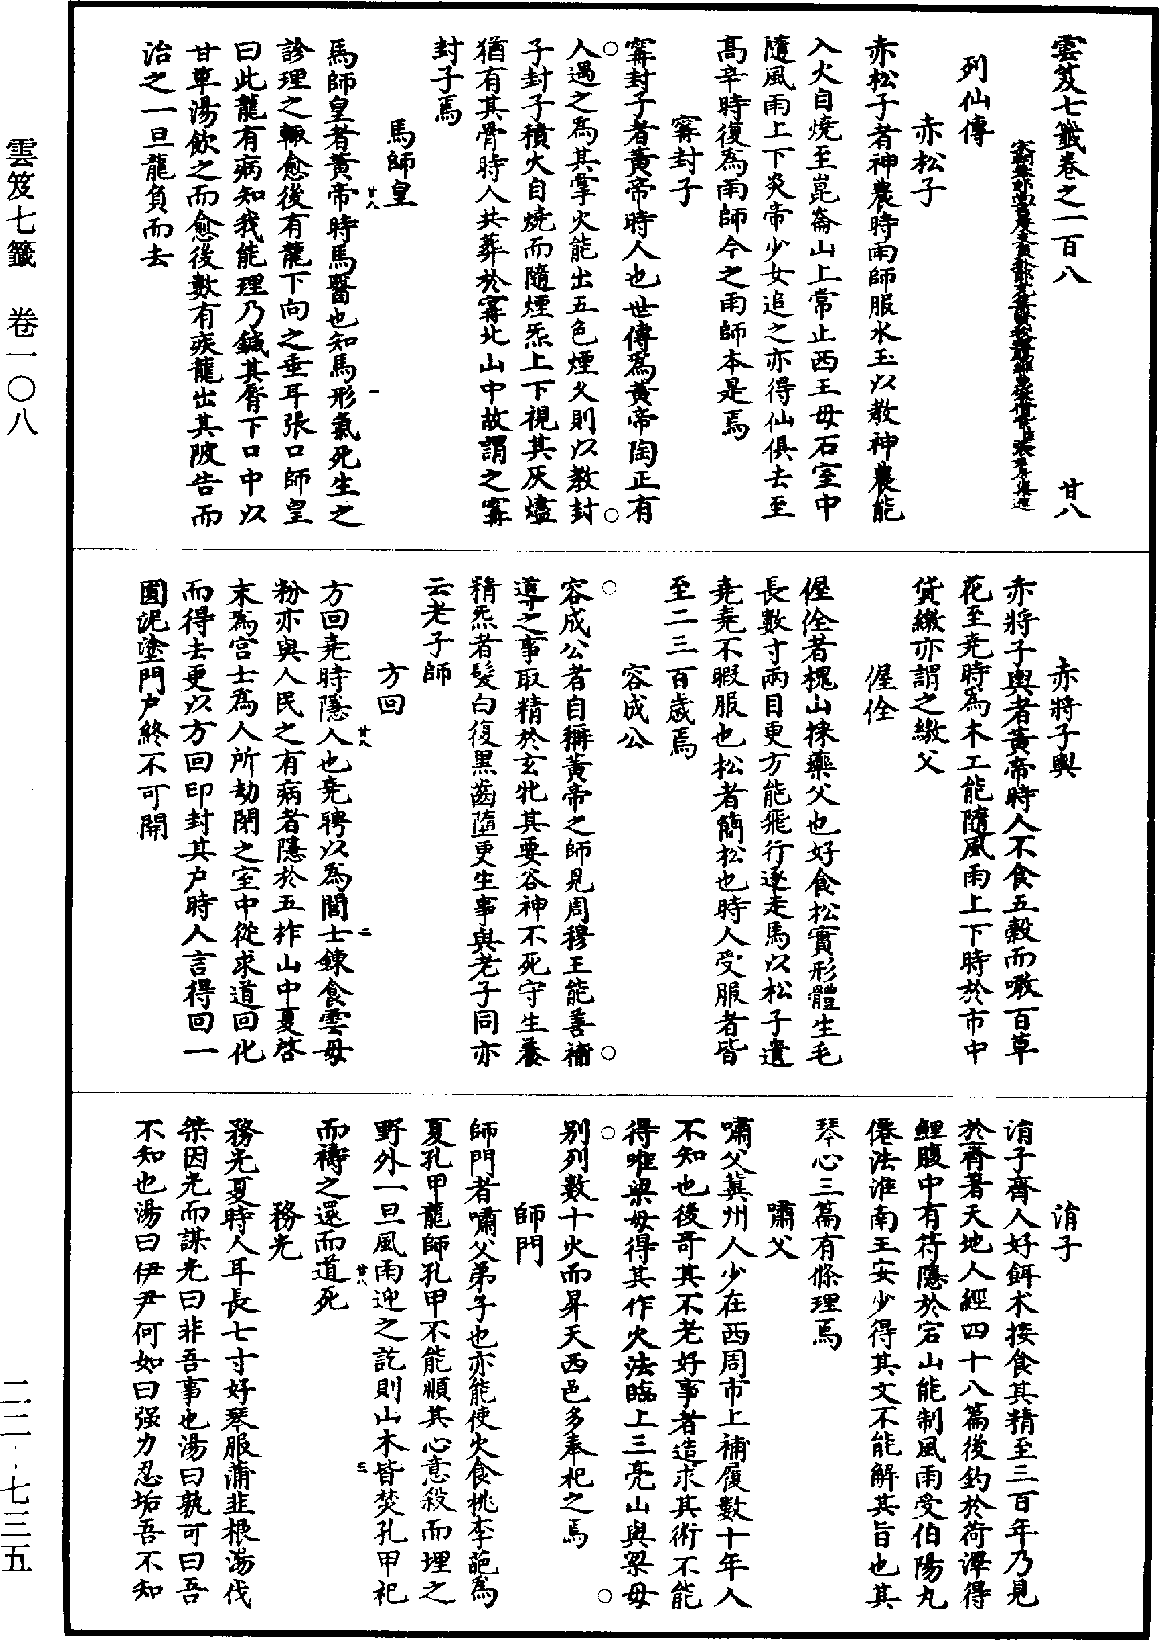 雲笈七籤卷之一百八 廿八
列仙傳
赤松子
赤松子者神農時雨師服水玉以教神農能
入火自燒至崑崙山上常止西王母石室中
隨風雨上下炎帝少女追之亦得仙俱去至
高辛時復為雨師今之雨師本是焉
甯封子
甯封子者黃帝時人也世傳為黃帝陶正有
人過之為其掌火能出五色煙久則以教封
子封子積火自燒而隨煙炁上下視其灰燼
猶有其骨時人共葬於甯北山中故謂之甯
封子焉
馬師皇
馬師皇者黃帝時馬醫也知馬形氣死生之
診理之輒愈後有龍下向之垂耳張口師皇
曰此龍有病知我能理乃鍼其脣下口中以
甘草湯飲之而愈後數有疾龍出其陂告而
治之一旦龍負而去
廿八 一
赤將子輿
赤將子輿者黃帝時人不食五穀而噉百草
花至堯時為木工能隨風雨上下時於市中
貨繳亦謂之繳父
偓佺
偓佺者槐山採藥父也好食松實形體生毛
長數寸兩目更方能飛行逐走馬以松子遺
堯堯不暇服也松者簡松也時人受服者皆
至二三百歲焉
容成公
容成公者自稱黃帝之師見周穆王能善補
導之事取精於玄牝其要谷神不死守生養
精炁者髮白復黑齒墮更生事與老子同亦
云老子師
方回
方回堯時隱人也堯聘以為閭士鍊食雲母
粉亦與人民之有病者隱於五柞山中夏啓
末為宫士為人所劫閉之室中從求道回化
而得去更以方回印封其户時人言得回一
圓泥塗門户終不可開
廿八 二
涓子
涓子齊人好餌术接食其精至三百年乃見
於齊著天地人經四十八篇後釣於荷澤得
鯉腹中有符隱於宕山能制風雨受伯陽九
僊法淮南王安少得其文不能解其旨也其
琴心三篇有條理焉
嘯父
嘯父冀州人少在西周市上補履數十年人
不知也後奇其不老好事者造求其術不能
得唯梁母得其作火法臨上三亮山與梁母
别列數十火而昇天西邑多奉祀之焉
師門
師門者嘯父弟子也亦能使火食桃李葩為
夏孔甲龍師孔甲不能順其心意殺而埋之
野外一旦風雨迎之訖則山木皆焚孔甲祀
而禱之還而道死
廿八 三
務光
務光夏時人耳長七寸好琴服蒲韭根湯伐
桀因光而謀光曰非吾事也湯曰孰可曰吾
不知也湯曰伊尹何如曰强力忍垢吾不知
雲笈七籤 卷一〇八
二二-七三五